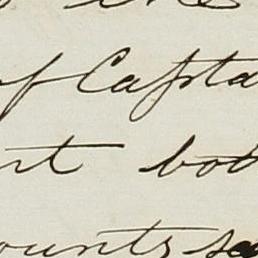 of Capta
rt bot
ounty s